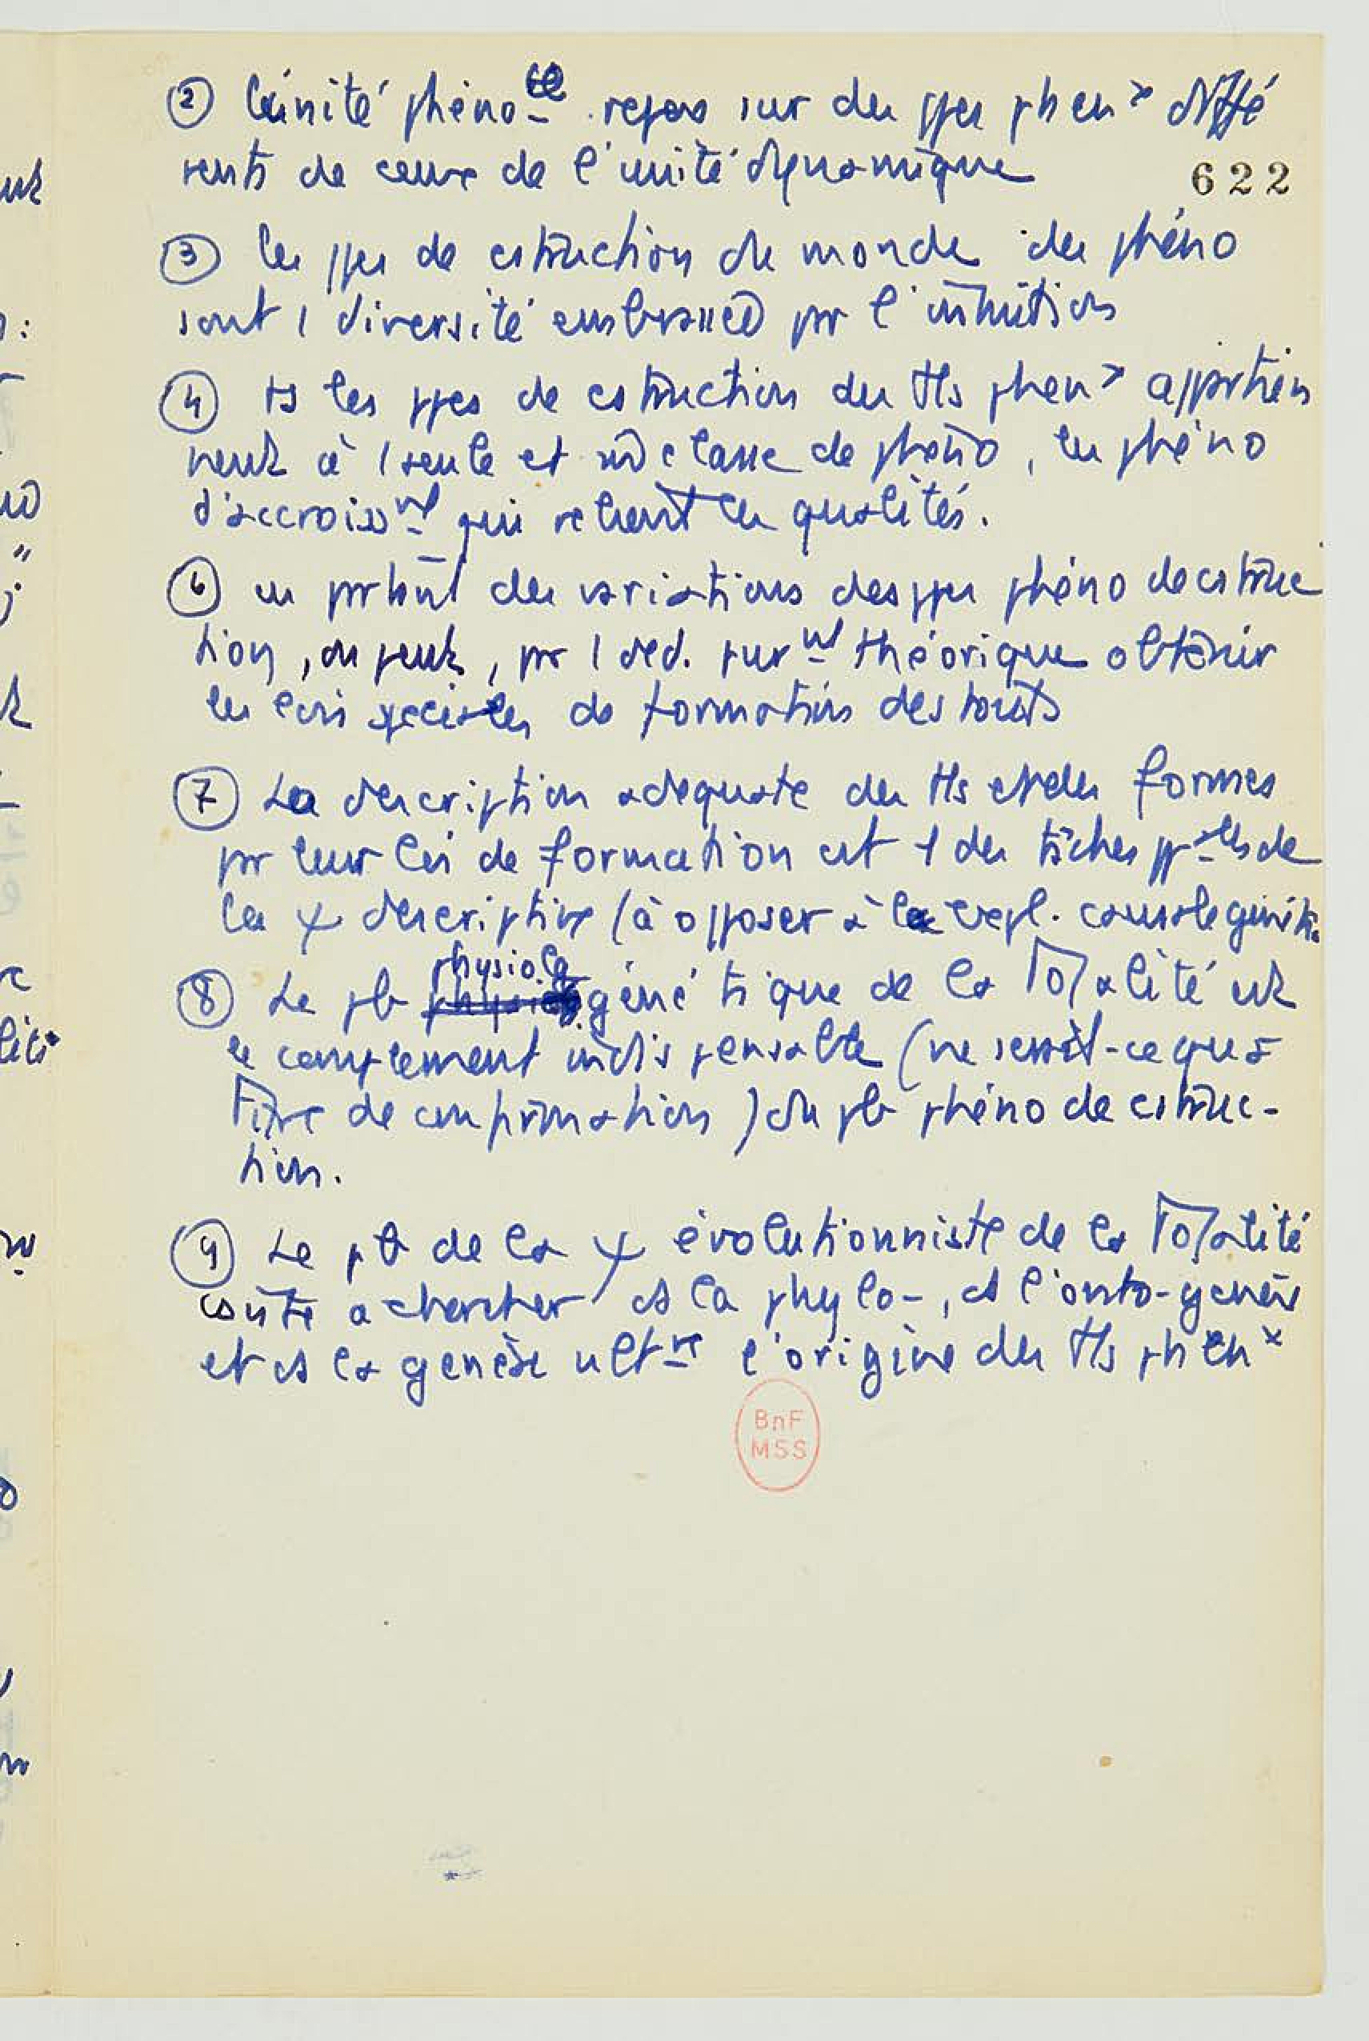 ② L'unité phéno-le repose sur des ppes phenx diffé
rents de ceux de l'unité dynamique
622
③ les ppes de cstruction du monde des phéno
sont 1 diversité embrassée pr l'intuition
④ ts les ppes de cstruction des tts phenx appartien
nent à 1 seule et m̂ classe de phéno, les phéno
d'accroisst qui relient les qualités.
⑥ en partant des variations des ppes phéno de cstruc
tion, on peut, pr 1 déd. purmt théorique obtenir
les lois spéciales de formation des touts
⑦ La description adéquate des tts et des formes
pr leur loi de formation est 1 des tâches ppales de
la ψ descriptive (à opposer à la expl. causale génét.
⑧ Le pb physiolg génétique de la Totalité est
le complement indispensable (ne serait-ce qu'à
titre de confirmation) du pb phéno de cstruc-
tion.
⑨ Le pb de la ψ évolutionniste de la Totalité
cste a chercher ds la phylo-, ds l'onto-genèse
et ds la genèse ultre l'origine des tts phenx
BnF
MSS